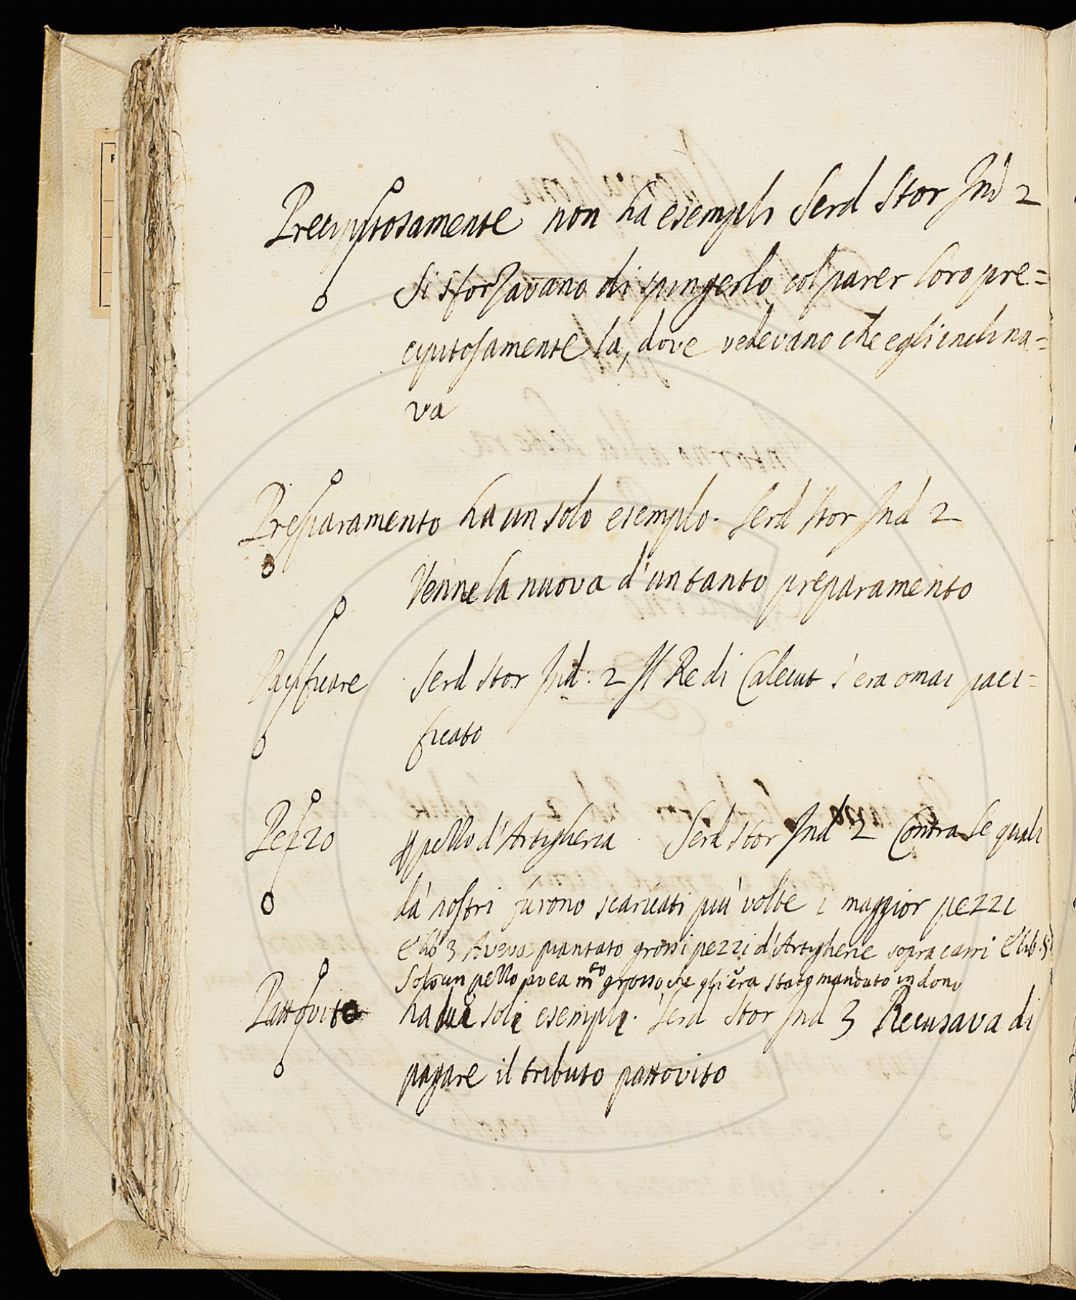 Precipitosamente non ha esempli Serd Stor Ind 2
Si sforzavano di spingerlo col parer loro pre=
cipitosamente la, dove vedevano che egli inchina=
va
Preparamento ha un solo esemplo. Serd Stor Ind 2
Venne la nuova d'un tanto preparamento
Pacificare Serd Stor Ind. 2 Il Re di Calecut s'era omai paci=
ficato
Pezzo d'Artigheria Serd Stor Ind 2 Contra le quali
da nostri furono scaricati più volte i maggior pezzi
E lib 3 Aveva piantato grossi pezzi d'Artigherie sopra carri E lib. 5
Solo un pezzo avea m.to grosso che gli era stato mandato in dono
Pattovito ha due soli esempli. Serd Stor Ind 3 Recusava di
pagare il tributo pattovito